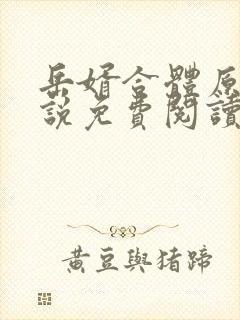 岳婿合體原
說免費閱讀
黃豆與猪蹄